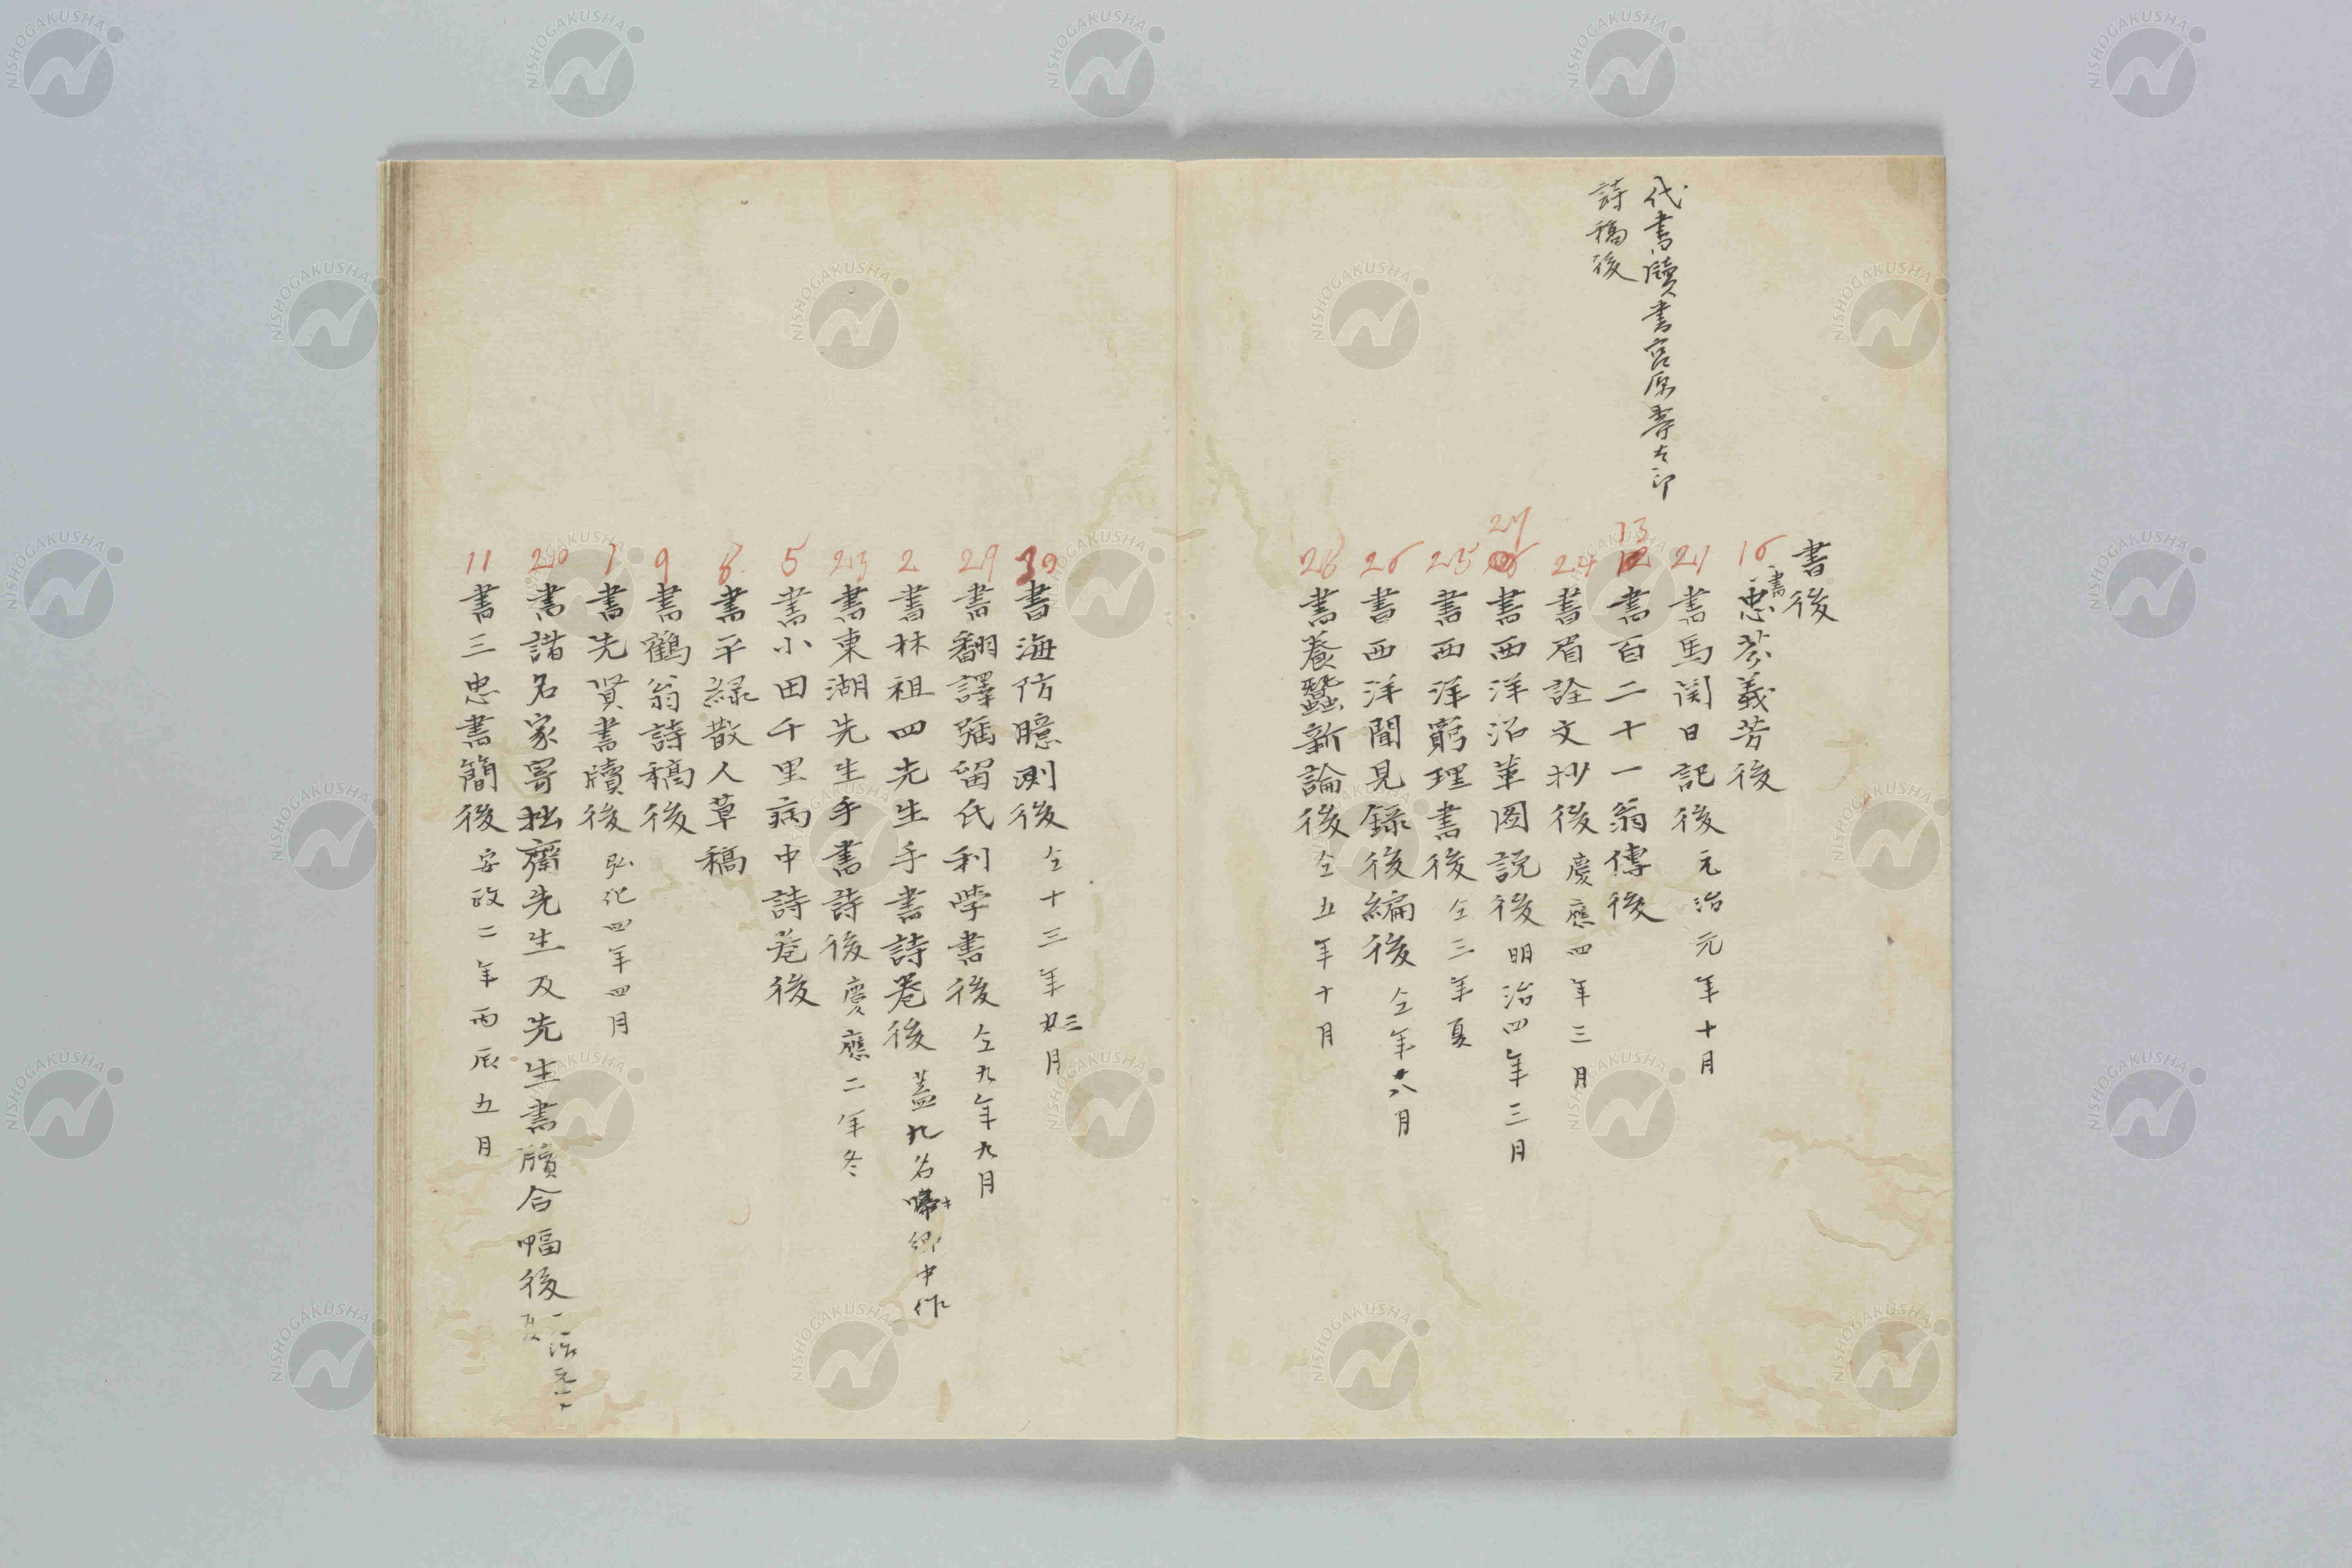 代書牘書宮原壽太郎
詩稿後
書後
16 書忠芬義芳後
21 書馬関日記後 元治元年十月
13 書百二十一翁傳後
24 書眉詮文抄後 慶應四年三月
27 書西洋沿革圖説後 明治四年三月
25 書西洋窮理書後 仝三年夏
26 書西洋聞見録後編後 仝年八月
28 書養蠶新論後 仝五年十月
30 書海防臆測後 仝十三年三月
29 書翻譯彌留氏利學書後 仝九年九月
2 書林祖四先生手書詩巻後 蓋九名郷中作
23 書東湖先生手書詩後 慶應二年冬
5 書小田千里病中詩巻後
8 書平緑散人草稿
9 書鶴翁詩稿後
7 書先賢書牘後 弘化四年四月
20 書諸名家寄拙齋先生及先生書牘合幅後
11 書三忠書簡後 安政二年丙辰五月
NISHOGAKUSHA